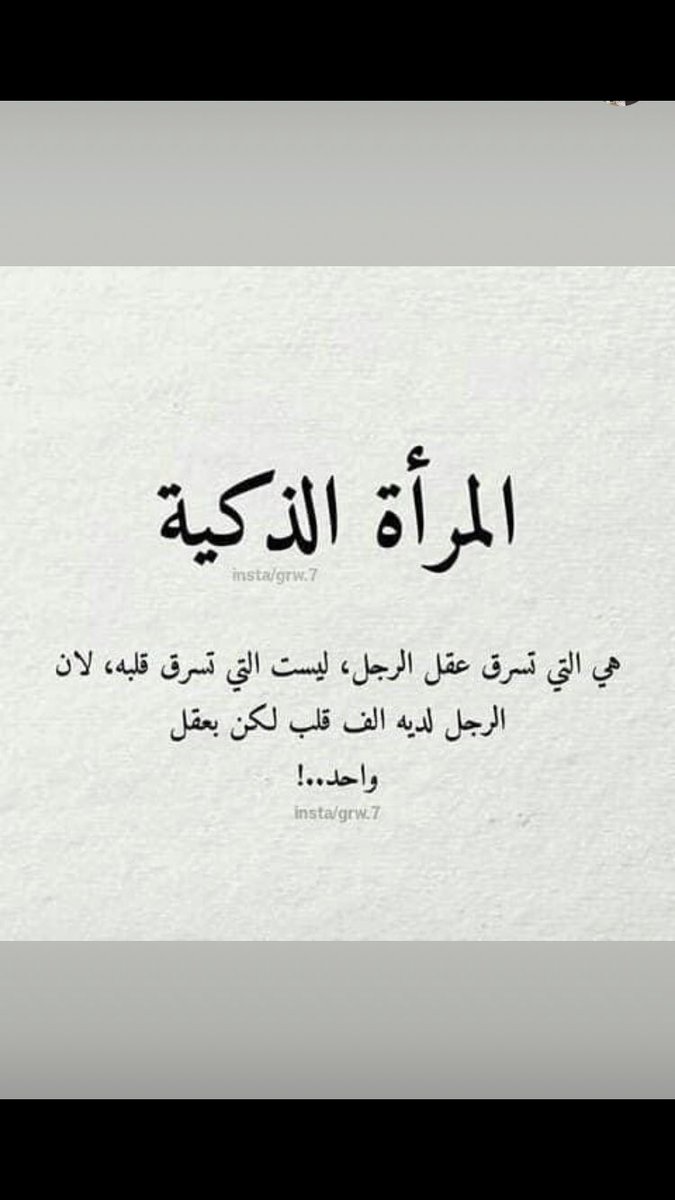 المرأة الذكية
insta/grw.7
هي التي تسرق عقل الرجل، ليست التي تسرق قلبه، لان
الرجل لديه الف قلب لكن بعقل
واحد..!
insta/grw.7